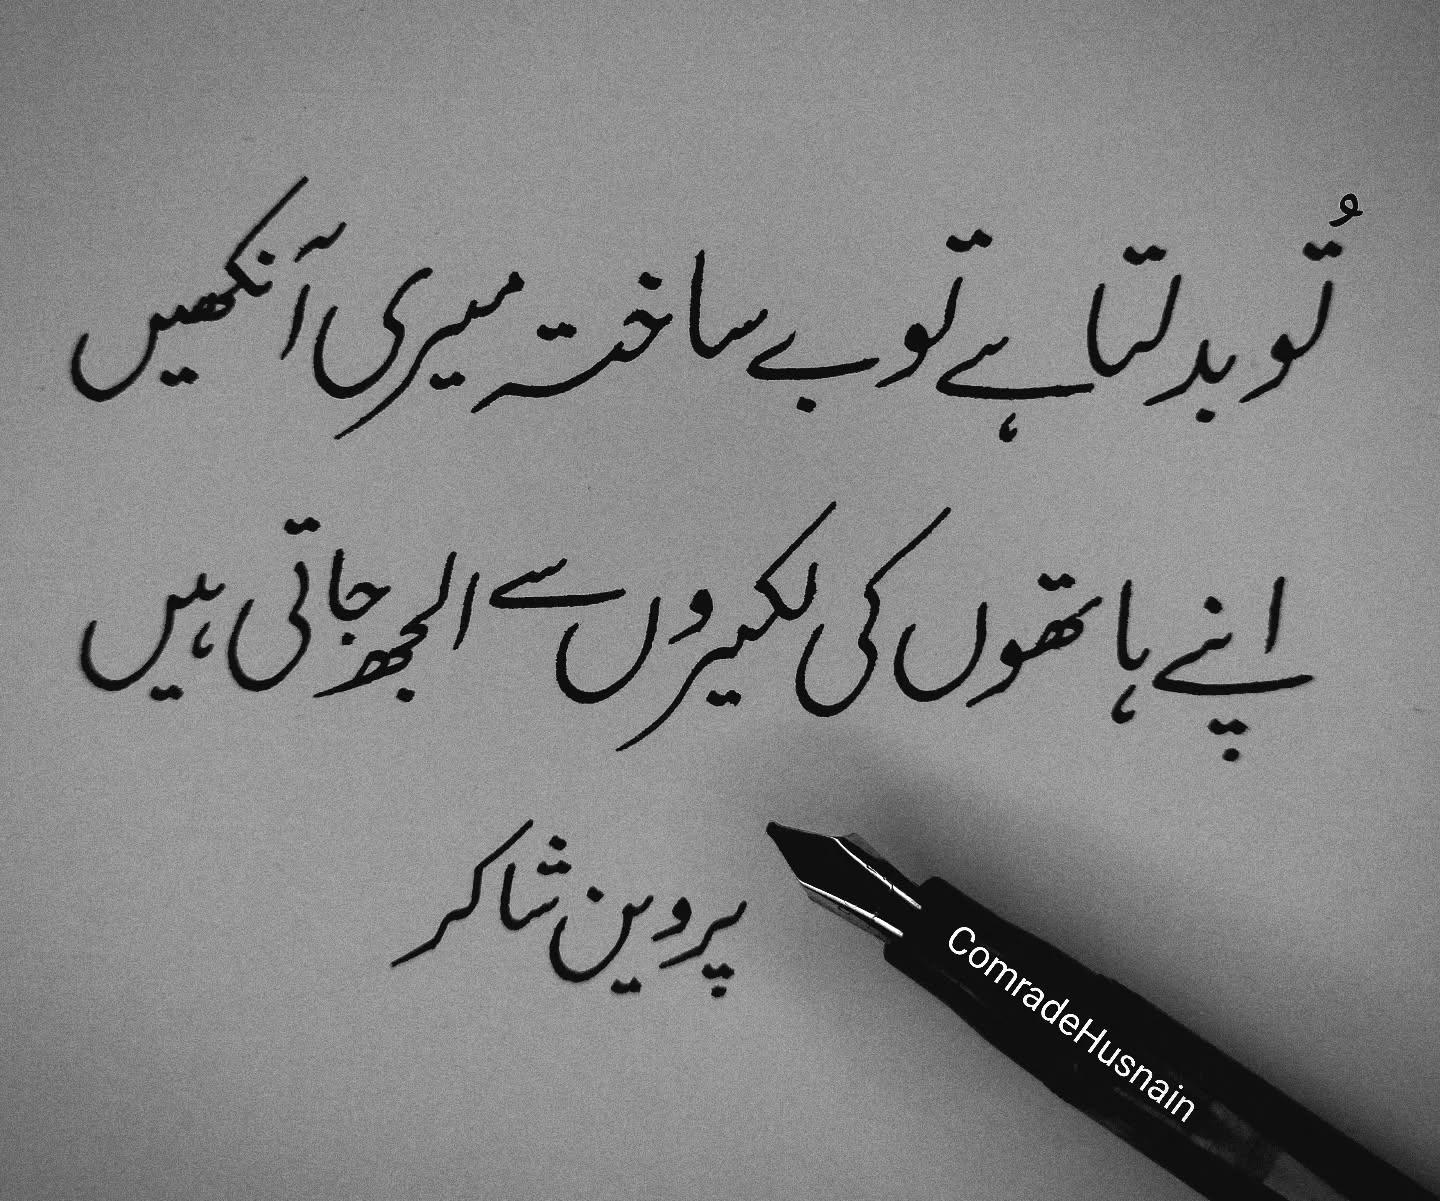 تُو بدلتا ہے تو بے ساختہ میری آنکھیں
اپنے ہاتھوں کی لکیروں سے الجھ جاتی ہیں
پروین شاکر
ComradeHusnain